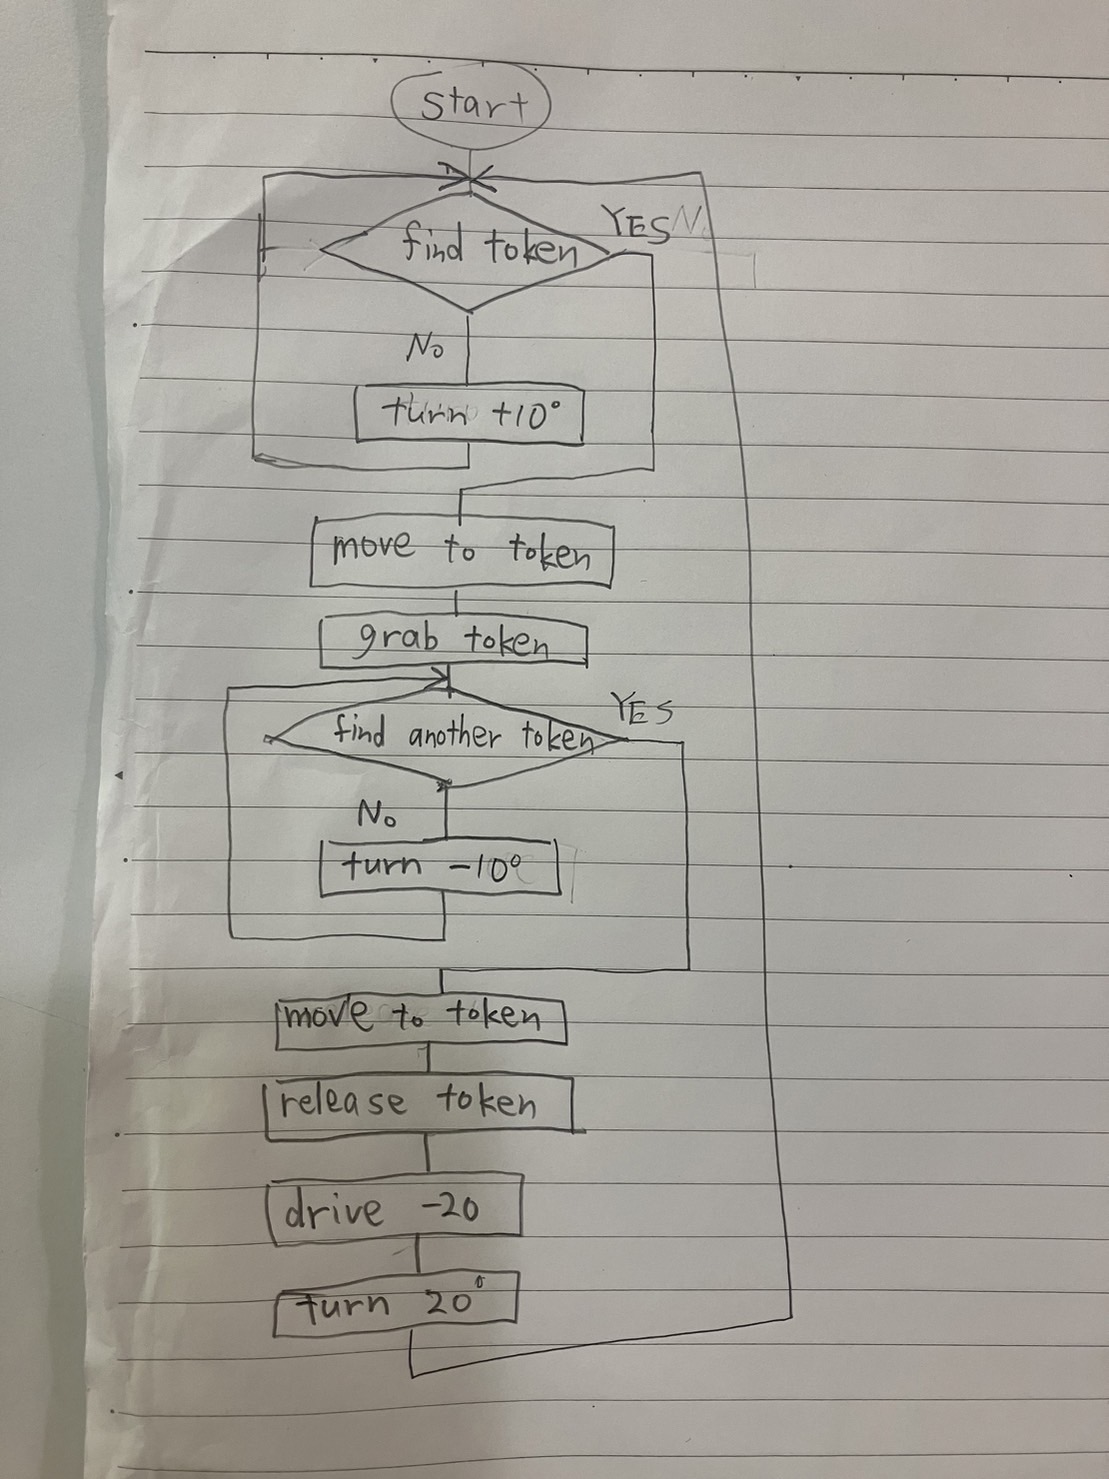 start
YES
find token
No
turn +10°
move to token
grab token
YES
find another token
No
turn -10°
move to token
release token
drive -20
turn 20°